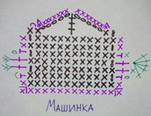 Машинка